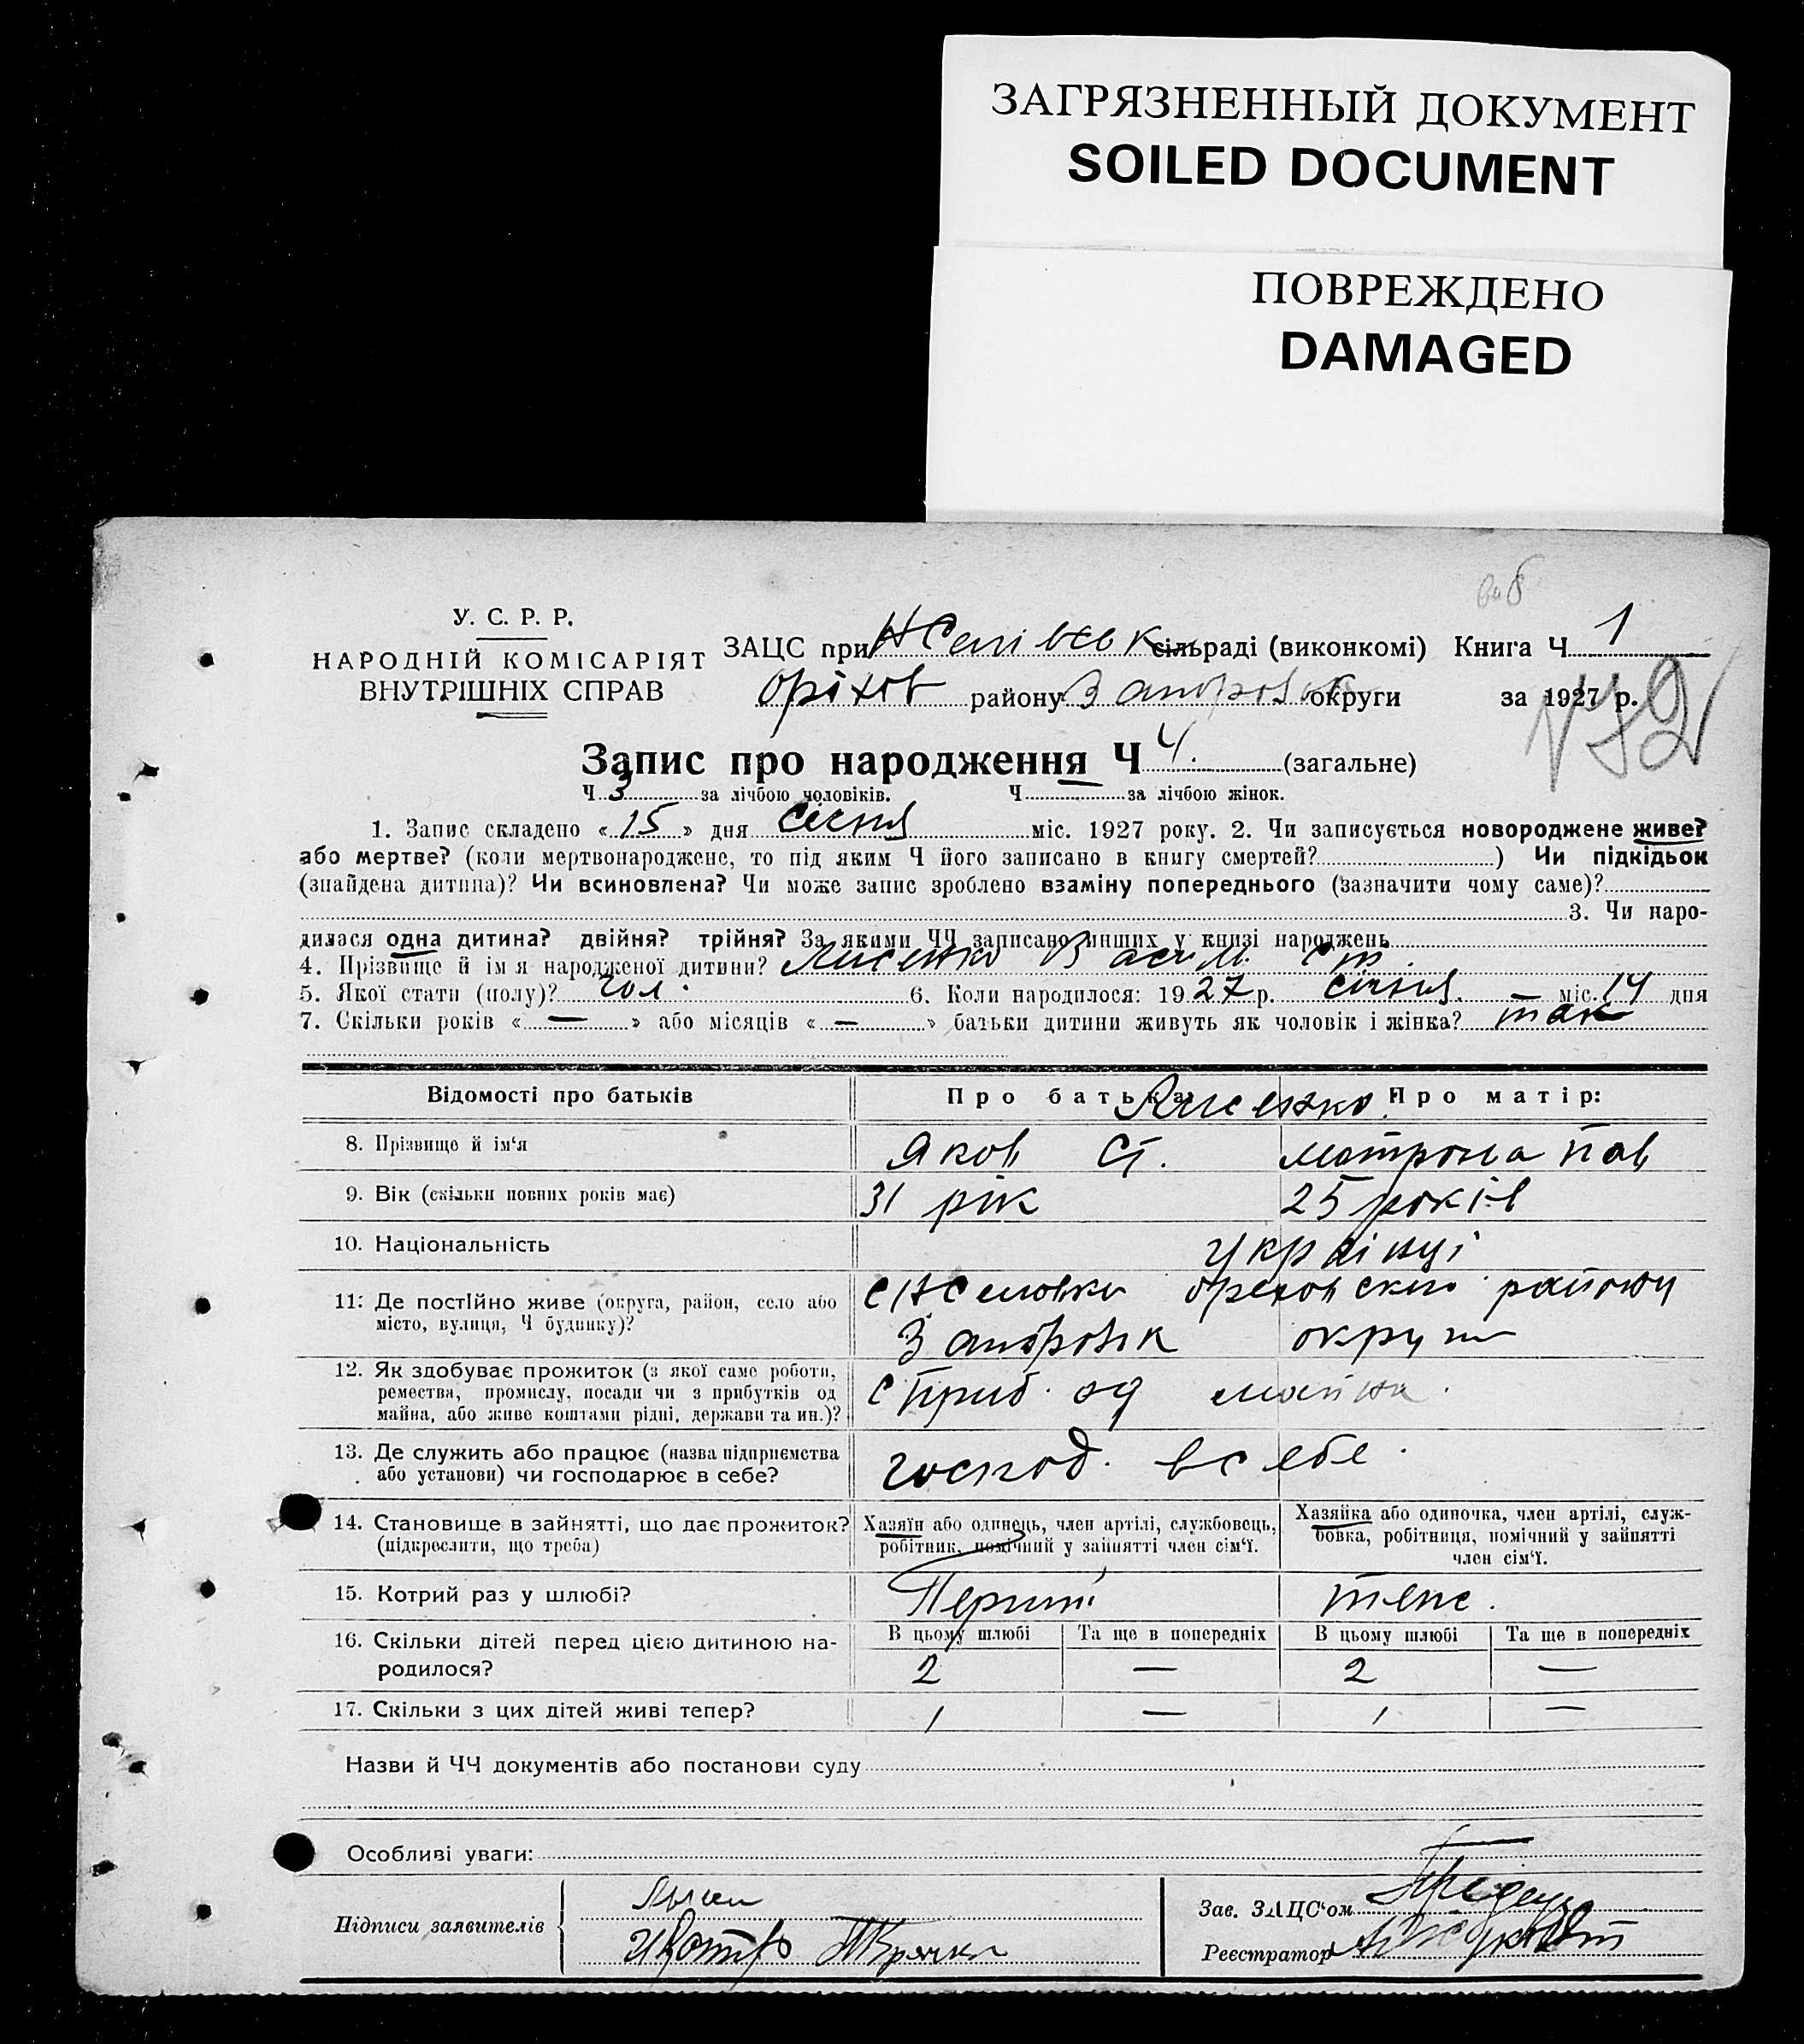 ЗАГРЯЗНЕННЫЙ ДОКУМЕНТ
SOILED DOCUMENT
ПОВРЕЖДЕНО
DAMAGED
У. С. Р. Р.
НАРОДНІЙ КОМІСАРІЯТ
ВНУТРІШНІХ СПРАВ
ЗАЦС при сільраді (виконкомі) Книга Ч 1
Оріхов району Запорозьк округи за 1927 р.
Запис про народження Ч 4. (загальне)
Ч 3 за лічбою чоловіків. Ч за лічбою жінок.
1. Запис складено « 15 » дня Січня міс. 1927 року. 2. Чи записується новороджене живе?
або мертве? (коли мертвонароджене, то під яким Ч його записано в книгу смертей? ) Чи підкідьок
(знайдена дитина)? Чи всиновлена? Чи може запис зроблено взаміну попереднього (зазначити чому саме)?
3. Чи наро-
дилася одна дитина? двійня? трійня? За якими ЧЧ записано инших у книзі народжень
4. Прізвище й імя народженої дитини? Лисенко Васил
5. Якої стати (полу)? чол. 6. Коли народилося: 1927 р. січня. — міс. 14 дня
7. Скільки років « — » або місяців « — » батьки дитини живуть як чоловік і жінка? так
Відомості про батьків Про батька: Лисенко. Про матір:
8. Прізвище й ім‘я Яков Ст. Мотрона Пав
9. Вік (скільки повних років має) 31 рік 25 років
10. Національність Українці
11: Де постійно живе (округа, район, село або
місто, вулиця, Ч будинку)?
ореховского району
Запорозьк округи
12. Як здобуває прожиток (з якої саме роботи,
ремества, промислу, посади чи з прибутків од
майна, або живе коштами рідні, держави та ин.)?
с приб. од майна.
13. Де служить або працює (назва підприємства
або установи) чи господарює в себе?
господ. в себе.
14. Становище в зайнятті, що дає прожиток?
(підкреслити, що треба)
Хазяїн або одинець, член артілі, службовець,
робітник, помічний у зайнятті член сім‘ї.
Хазяйка або одиночка, член артілі, служ-
бовка, робітниця, помічний у зайнятті
член сім‘ї.
15. Котрий раз у шлюбі? Перший теж.
16. Скільки дітей перед цією дитиною на-
родилося?
В цьому шлюбі Та ще в попередніх В цьому шлюбі Та ще в попередніх
2 — 2 —
17. Скільки з цих дітей живі тепер? 1 — 1 —
Назви й ЧЧ документів або постанови суду
Особливі уваги:
Підписи заявителів
Зав. ЗАЦС‘ом
Реєстратор